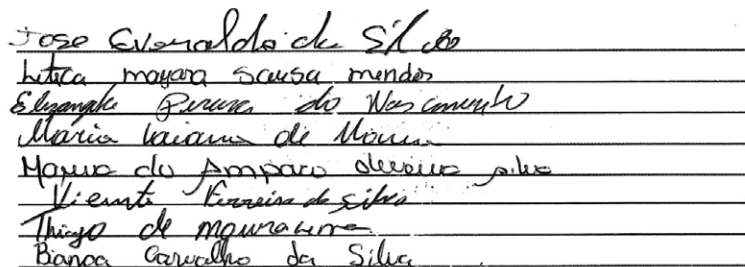 Jose Everaldo da Silva
Letica mayara Sousa mendes
Elizangela Pereira do Nascimento
Maria Laiane de Moura
Maria do Amparo oliveira silva
Vicente Ferreira da silva
Thiago de moura
Bianca Carvalho da Silva